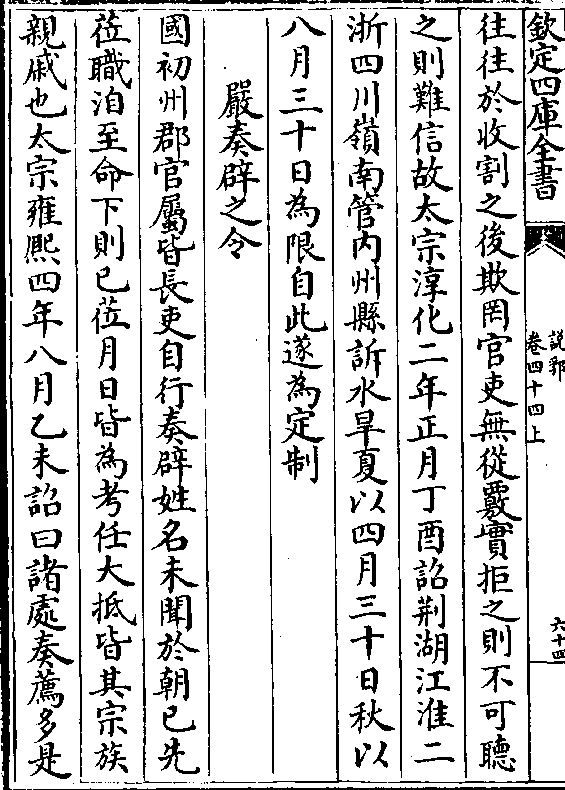 欽定四庫全書
說郛
卷四十四上
六十四
往往於收割之後欺罔官吏無從覈實拒之則不可聽
之則難信故太宗淳化二年正月丁酉詔荆湖江淮二
浙四川嶺南管内州縣訴水旱夏以四月三十日秋以
八月三十日為限自此遂為定制
嚴奏辟之令
國初州郡官屬皆長吏自行奏辟姓名未聞於朝已先
莅職洎至命下則已莅月日皆為考任大抵皆其宗族
親戚也太宗雍熙四年八月乙未詔曰諸處奏薦多是